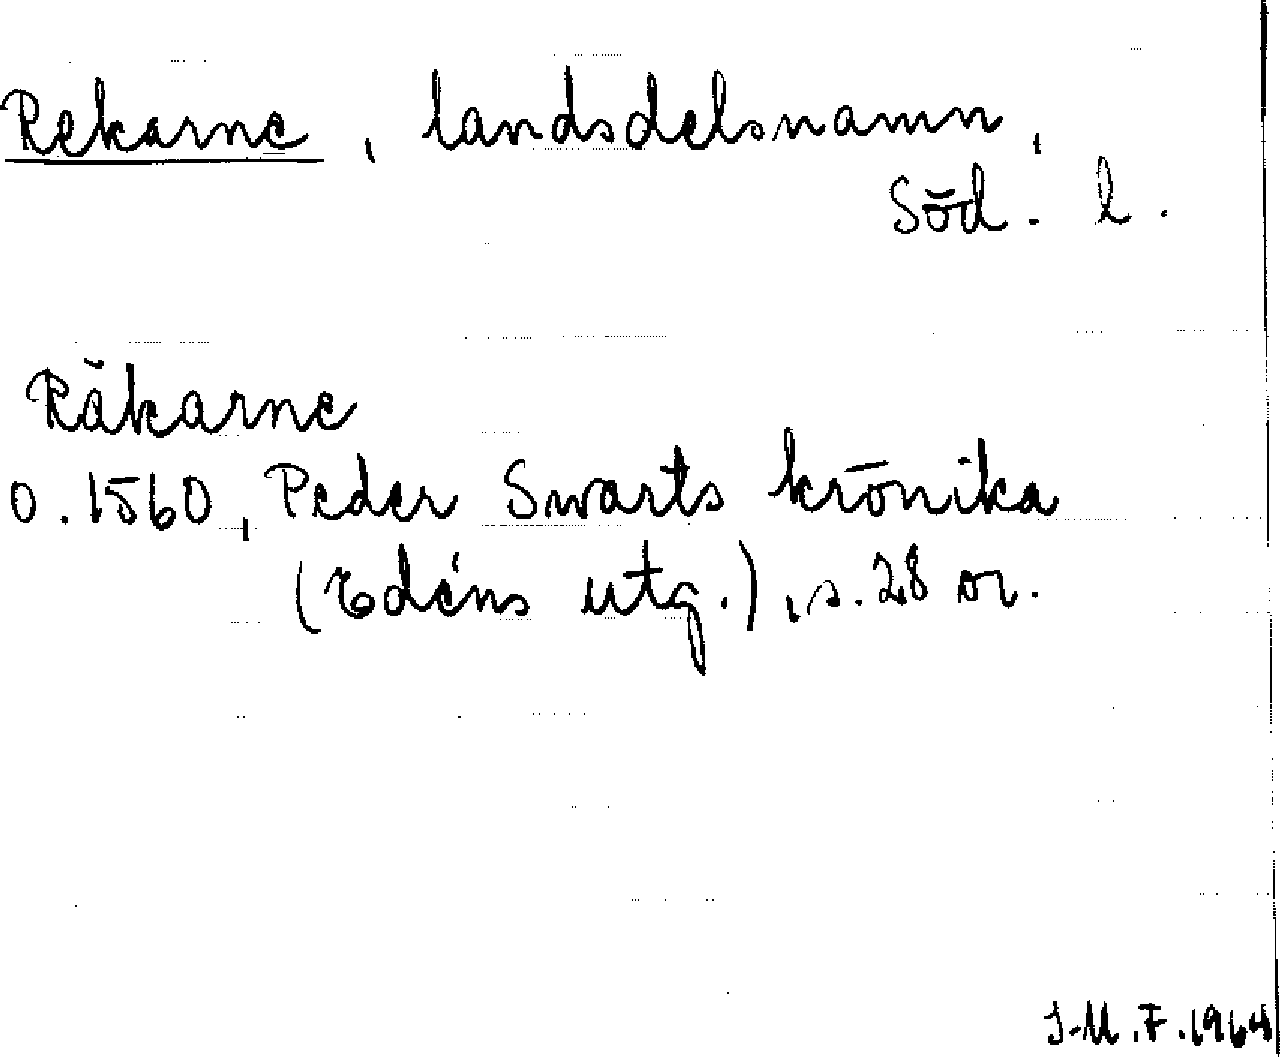 Rekarne, landsdelsnamn,
Söd. l.
Räkarne
o. 1560, Peder Swarts krönika
(Edéns utg.), s. 28 or.
J-M.F. 1964